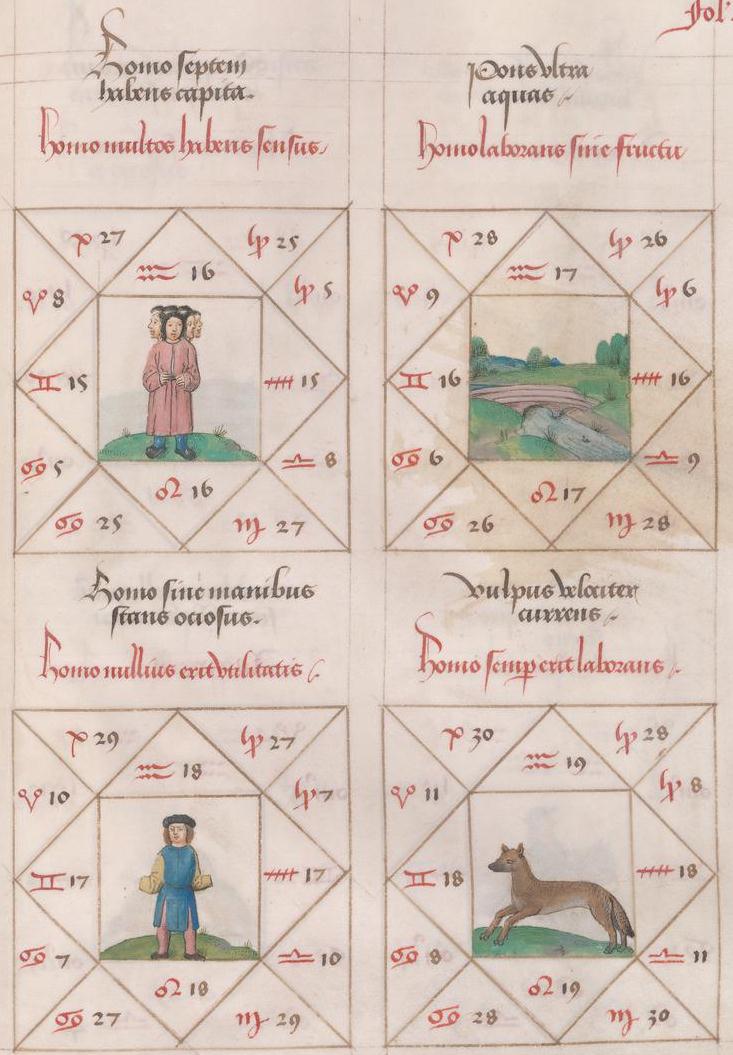 fol.
Homo septem
habens capita.
Homo multos habens sensus.
♓ 27
♑ 25
♒ 16
♈ 8
♑ 5
♊ 15
♐ 15
♋ 5
♎ 8
♌ 16
♋ 25
♏ 27
Pons vltra
aquas
Homo laborans sine fructu
♓ 28
♑ 26
♒ 17
♈ 9
♑ 6
♊ 16
♐ 16
♋ 6
♎ 9
♌ 17
♋ 26
♏ 28
Homo sine manibus
stans ociosus.
Homo nullius erit vtilitatis
♓ 29
♑ 27
♒ 18
♈ 10
♑ 7
♊ 17
♐ 17
♋ 7
♎ 10
♌ 18
♋ 27
♏ 29
vulpus velociter
currens
Homo semp erit laborans
♓ 30
♑ 28
♒ 19
♈ 11
♑ 8
♊ 18
♐ 18
♋ 8
♎ 11
♌ 19
♋ 28
♏ 30